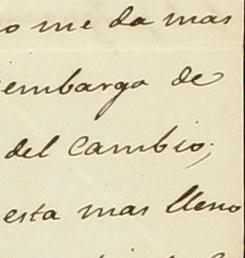 o me da mas
embargo de
del cambio;
esta mas lleno